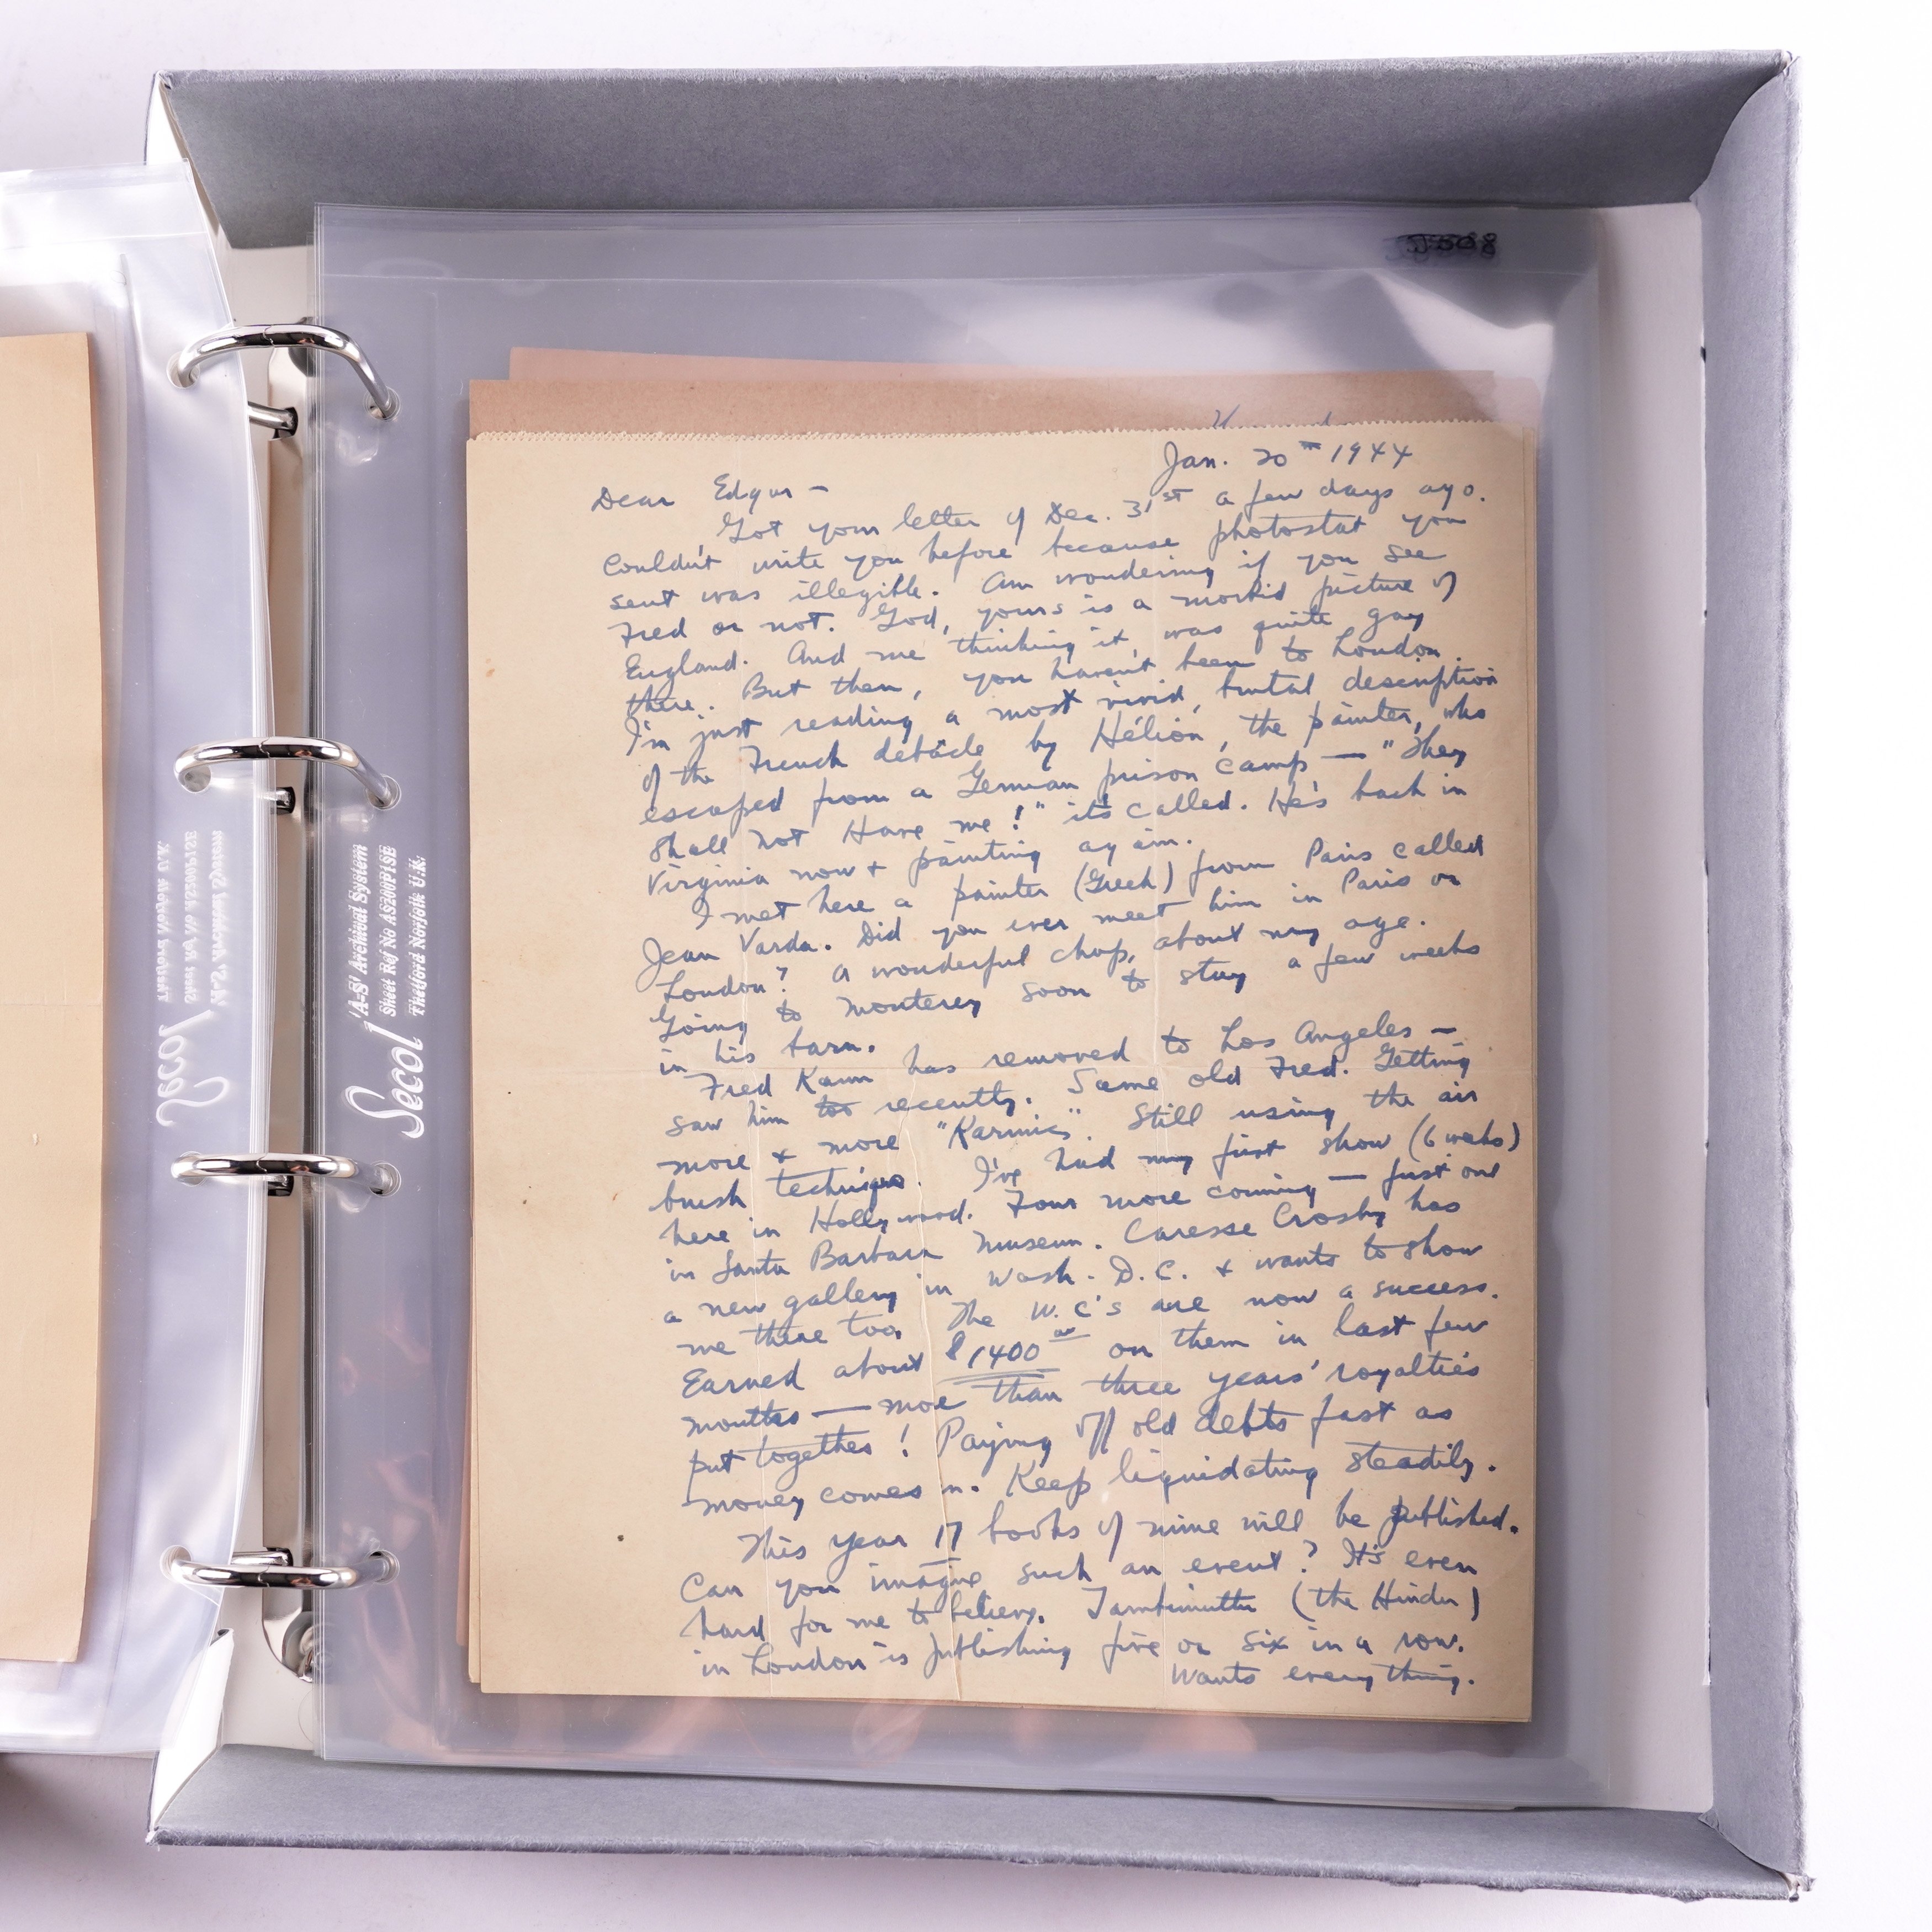 Jan. 20th 1944
Dear Edgar —
Got your letter of Dec. 31st a few days ago.
Couldn't write you before because photostat you
sent was illegible. Am wondering if you see
Fred or not. God, yours is a morbid picture of
England. And me thinking it was quite gay
there. But then, you haven't been to London.
I'm just reading a most vivid, brutal description
of the French debâcle by Hélion, the painter, who
escaped from a German prison camp — "They
shall not Have me!" it's called. He's back in
Virginia now & painting again.
I met here a painter (Greek) from Paris called
Jean Varda. Did you ever meet him in Paris or
London? A wonderful chap, about my age.
Going to Monterey soon to stay a few weeks
in his barn.
Fred Kann has removed to Los Angeles —
saw him recently. Same old Fred. Getting
more & more "Karmic". Still using the air
brush technique. I've had my first show (6 weeks)
here in Hollywood. Four more coming — just one
in Santa Barbara Museum. Caresse Crosby has
a new gallery in Wash. D.C. & wants to show
me there too. The W.C's are now a success.
Earned about $1400 00 on them in last few
months — more than three years' royalties
put together! Paying off old debts fast as
money comes in. Keep liquidating steadily.
This year 17 books of mine will be published.
Can you imagine such an event? It's even
hard for me to believe. Tambimuttu (the Hindu)
in London is publishing five or six in a row.
Wants everything.
Secol
'A-S' Archival System
Sheet Ref No AS200P1SE
Thetford Norfolk U.K.